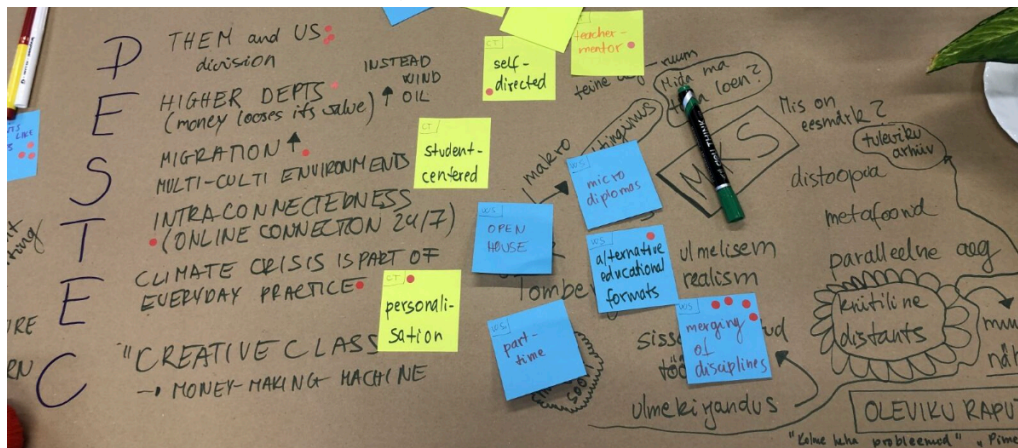 P
E
S
T
E
C
THEM and US
division
HIGHER DEPTS
(money looses its value)
INSTEAD
WIND
↑ OIL
MIGRATION ↑
MULTI-CULTI ENVIRONMENTS
INTRACONNECTEDNESS
(ONLINE CONNECTION 24/7)
CLIMATE CRISIS IS PART OF
EVERYDAY PRACTICE
"CREATIVE CLASS
→ MONEY-MAKING MACHINE
CT
self-
directed
teacher-
mentor
student-
centered
CT
personali-
sation
WS
OPEN
HOUSE
WS
part-
time
WS
micro
diplomas
WS
alternative
educational
formats
WS
merging
of
disciplines
teine
ruum
Mida ma
loen?
makro
MKS
Mis on
eesmärk?
tuleviku
arhiiv
distoopia
metafoorid
ulmelisem
realism
paralleelne aeg
kriitiline
distants
ulmekirjandus
OLEVIKU RAPU
"Kolme keha probleemid"